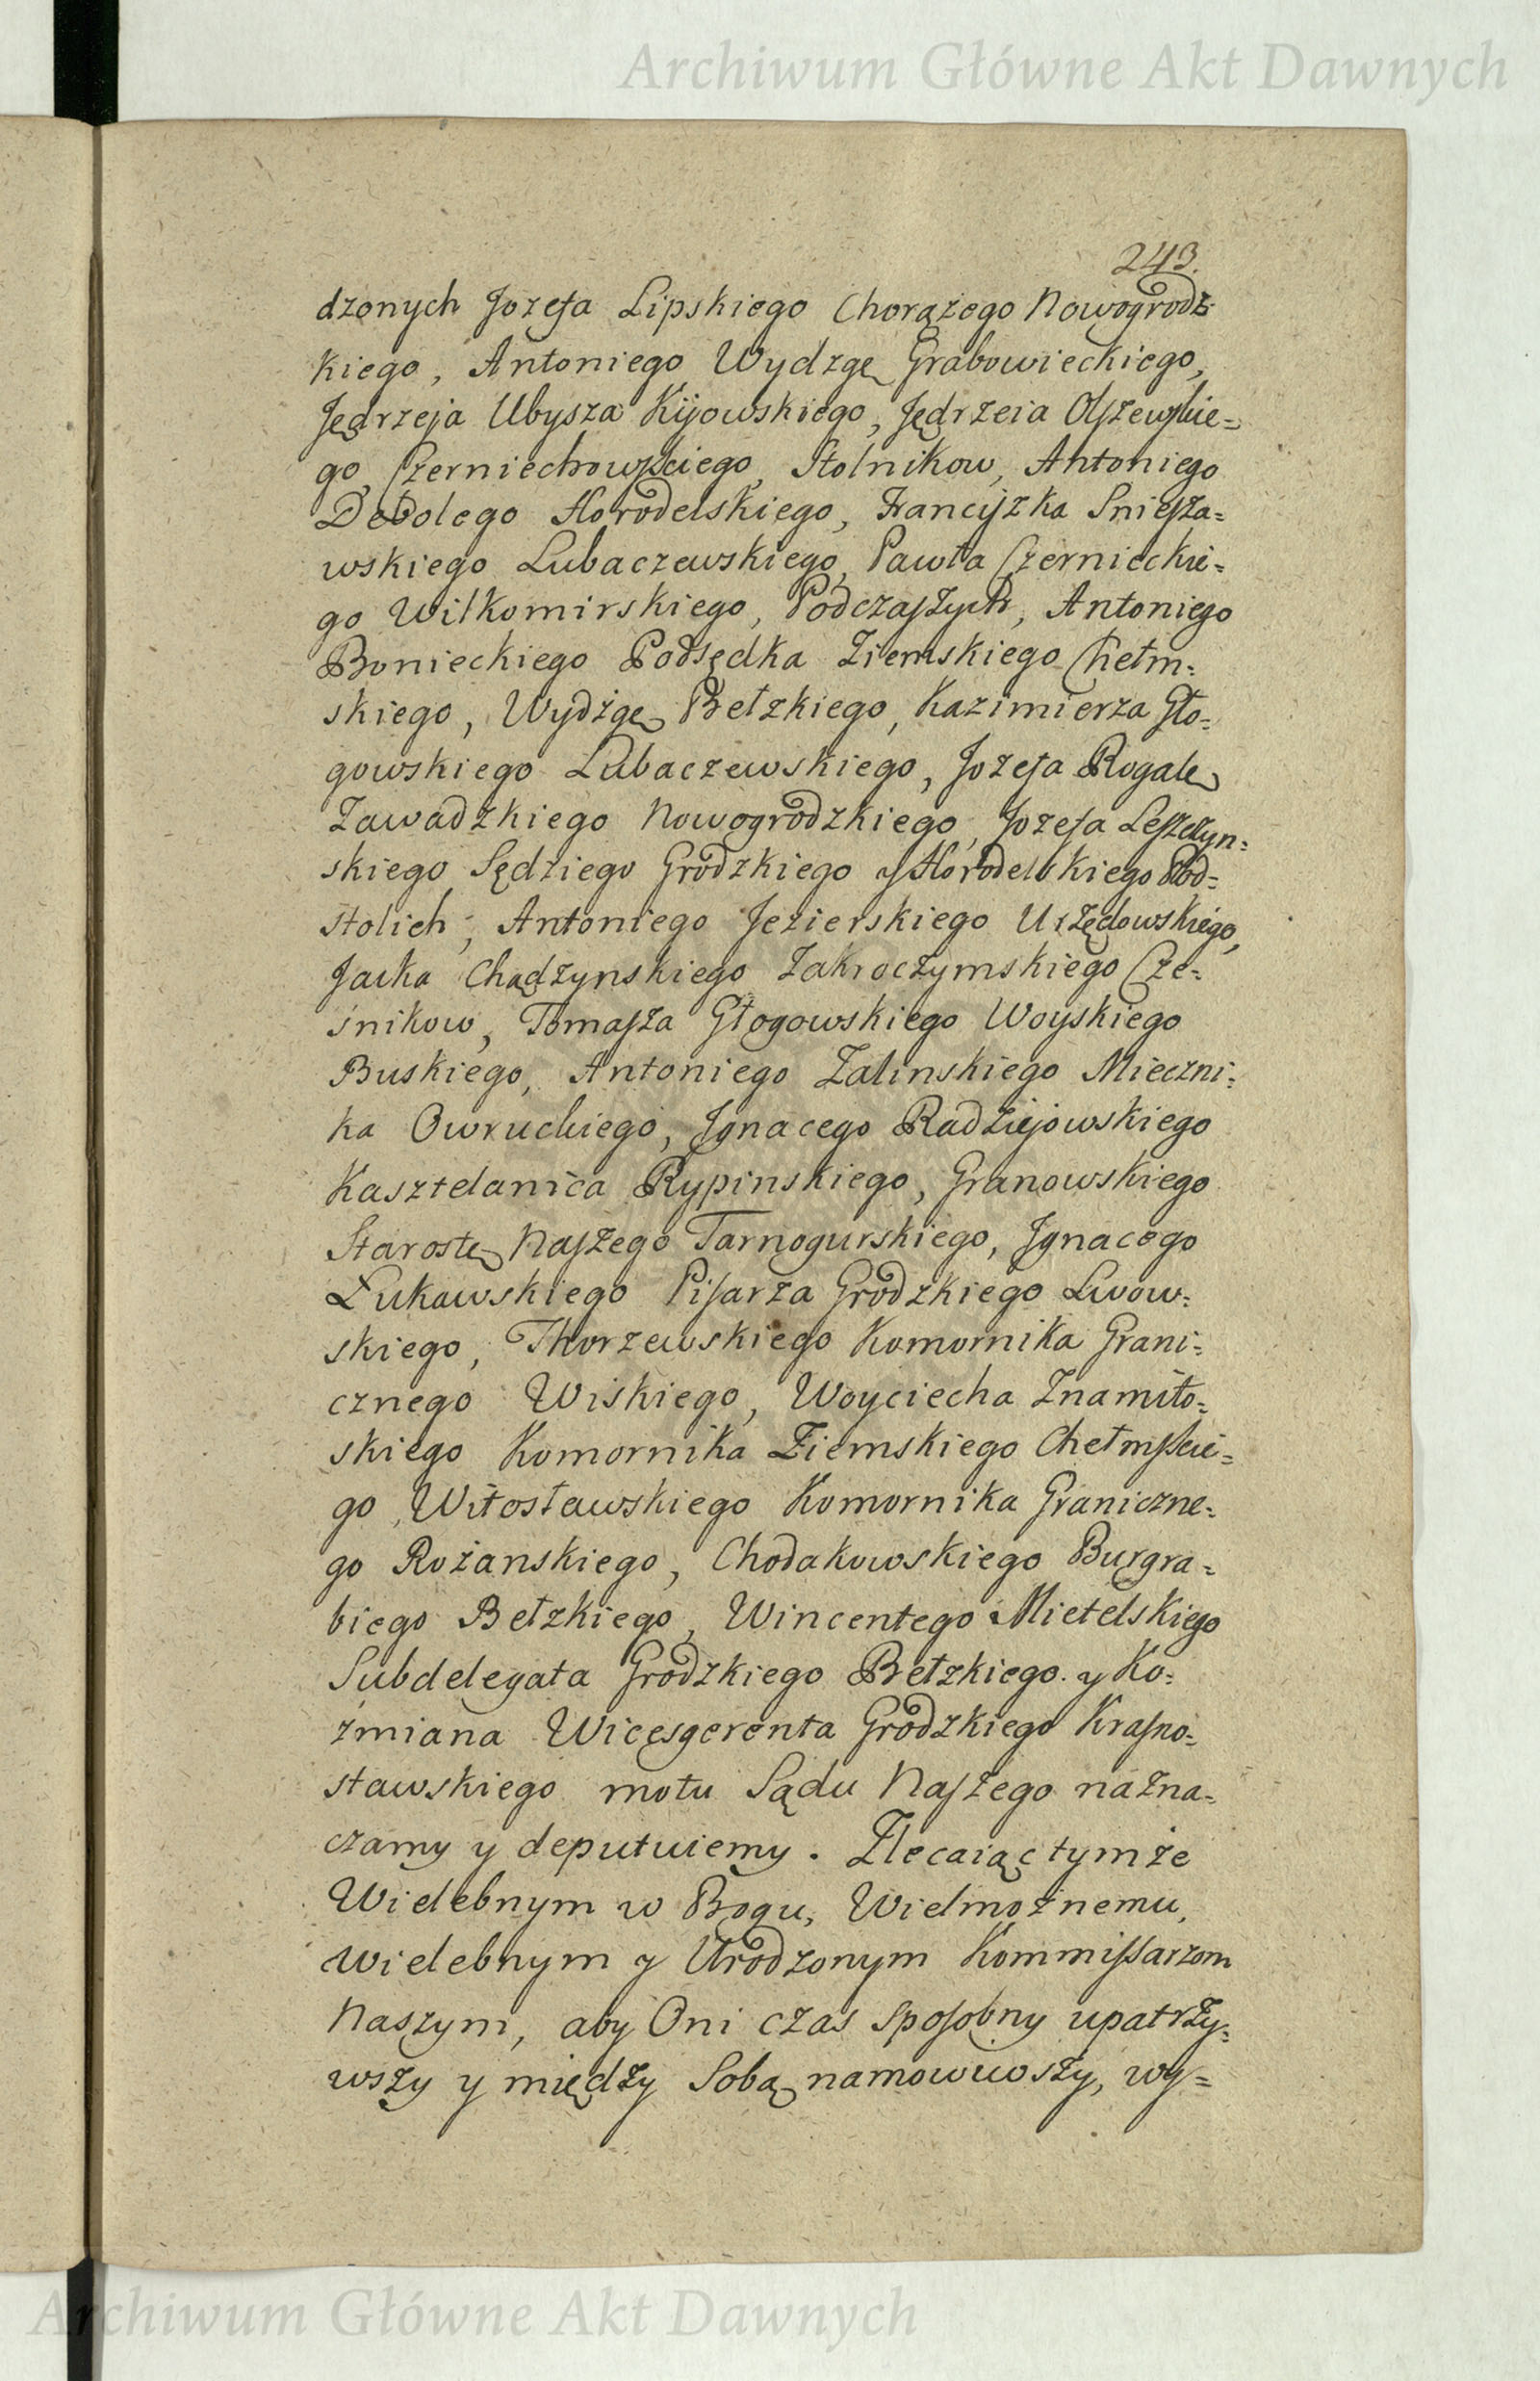 Archiwum Główne Akt Dawnych
243.
dzonych Jozefa Lipskiego Chorążego Nowogrodz-
kiego, Antoniego Wydzgę Grabowieckiego,
Jędrzeja Ubysza Kijowskiego, Jędrzeia Olszewskie=
go, Czerniechowskiego, Stolnikow, Antoniego
Debolego Horodelskiego, Franciszka Sniesza=
wskiego Lubaczewskiego, Pawła Czerniecki=
go Wilkomirskiego, Podczaszych, Antoniego
Bonieckiego Podsędka Ziemskiego Chełm=
skiego, Wydżgę Bełzkiego, Kazimierza Gło=
gowskiego Lubaczewskiego, Jozefa Rogalę
Zawadzkiego Nowogrodzkiego, Jozefa Leszczyn=
skiego Sędziego Grodzkiego y Horodelskiego Pod=
stolich, Antoniego Jezierskiego Urzędowskiego,
Jacka Chądzynskiego Zakroczymskiego Cze=
śnikow, Tomasza Głogowskiego Woyskiego
Buskiego, Antoniego Zalinskiego Mieczni=
ka Owruckiego, Ignacego Radziejowskiego
Kasztelanica Rypinskiego, Granowskiego
Starostę Naszego Tarnogurskiego, Ignacego
Łukawskiego Pisarza Grodzkiego Lwow=
skiego, Thorzewskiego Komornika Grani=
cznego Wiskiego, Woyciecha Znamiło=
skiego Komornika Ziemskiego Chełmski=
go, Witosławskiego Komornika Graniczne=
go Rożanskiego, Chodakowskiego Burgra=
biego Bełzkiego, Wincentego Mietelskiego
Subdelegata Grodzkiego Bełzkiego. y Ko=
zmiana Wicesgerenta Grodzkiego Krasno=
stawskiego motu Sądu Naszego nazna=
czamy y deputuiemy. Zlecaiąc tymże
Wielebnym w Bogu, Wielmożnemu,
Wielebnym y Urodzonym Kommissarzom
Naszym, aby Oni czas sposobny upatrzy=
wszy y między Sobą namowiwszy, wy=
Archiwum Główne Akt Dawnych